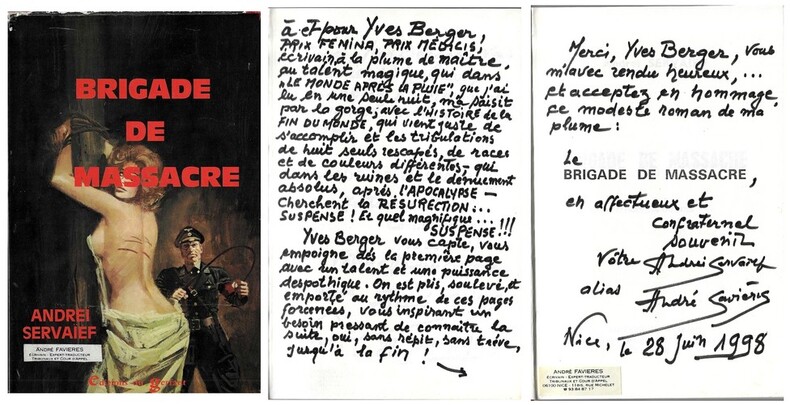 BRIGADE
DE
MASSACRE
ANDREI
SERVAIEF
ANDRÉ FAVIERES
ECRIVAIN - EXPERT-TRADUCTEUR
TRIBUNAUX ET COUR D'APPEL
à et pour Yves Berger,
PRIX FEMINA, PRIX MÉDICIS,
écrivain à la plume de maître,
au talent magique, qui dans
"LE MONDE APRÈS LA PLUIE" que j'ai
lu en une seule nuit, m'a saisit
par la gorge, avec l'HISTOIRE de la
FIN DU MONDE, qui vient juste de
s'accomplir et les tribulations
de huit seuls rescapés, de races
et de couleurs différentes - qui
dans les ruines et le dénuement
absolus, après l'APOCALYPSE -
cherchent la RÉSURECTION :..
SUSPENSE! Et quel magnifique...
SUSPENSE!!!
Yves Berger vous capte, vous
empoigne dès la première page
avec un talent et une puissance
despothique. On est pris, soulevé, et
emporté au rythme de ces pages
forcenées, vous inspirant un
besoin pressant de connaître la
suite, oui, sans répit, sans trève,
jusqu'à la fin !
Merci, Yves Berger, vous
m'avez rendu heureux,...
et acceptez en hommage,
ce modeste roman de ma
plume :
Le
BRIGADE DE MASSACRE,
en affectueux et
confraternel
souvenir
Votre Andrei Servaief
alias André Favières
Nice, le 28 Juin 1998
ANDRÉ FAVIERES
ECRIVAIN - EXPERT-TRADUCTEUR
TRIBUNAUX ET COUR D'APPEL
06100 NICE - 11BIS, RUE MICHELET